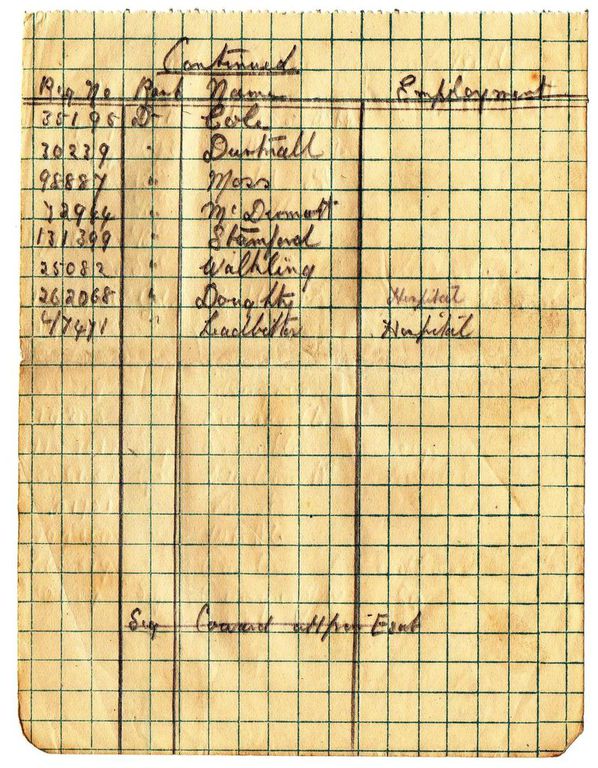 Continued
Reg No Rank Name Employment
35195 Dr Cole
30239 " Dunthall
98887 " Moss
72964 " McDermott
131399 " Stamford
25082 " Walkling
262068 " Doughty Hospital
4/7471 " Leadbitter Hospital
Sig Coward att from